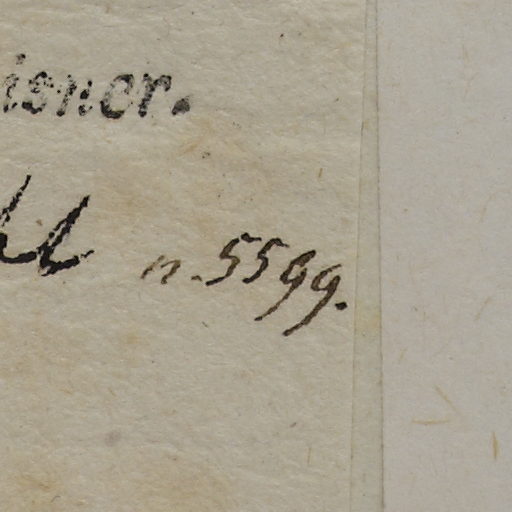 isner.
n. 5599.